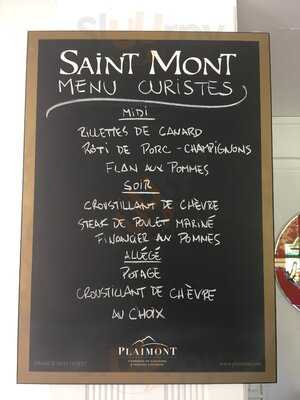 SAINT MONT
MENU CURISTES
MIDI
RILLETTES DE CANARD
RÔTI DE PORC - CHAMPIGNONS
FLAN AUX POMMES
SOIR
CROUSTILLANT DE CHÈVRE
STEAK DE POULET MARINÉ
FINANCIER AUX POMMES
ALLÉGÉ
POTAGE
CROUSTILLANT DE CHÈVRE
AU CHOIX
PLAIMONT